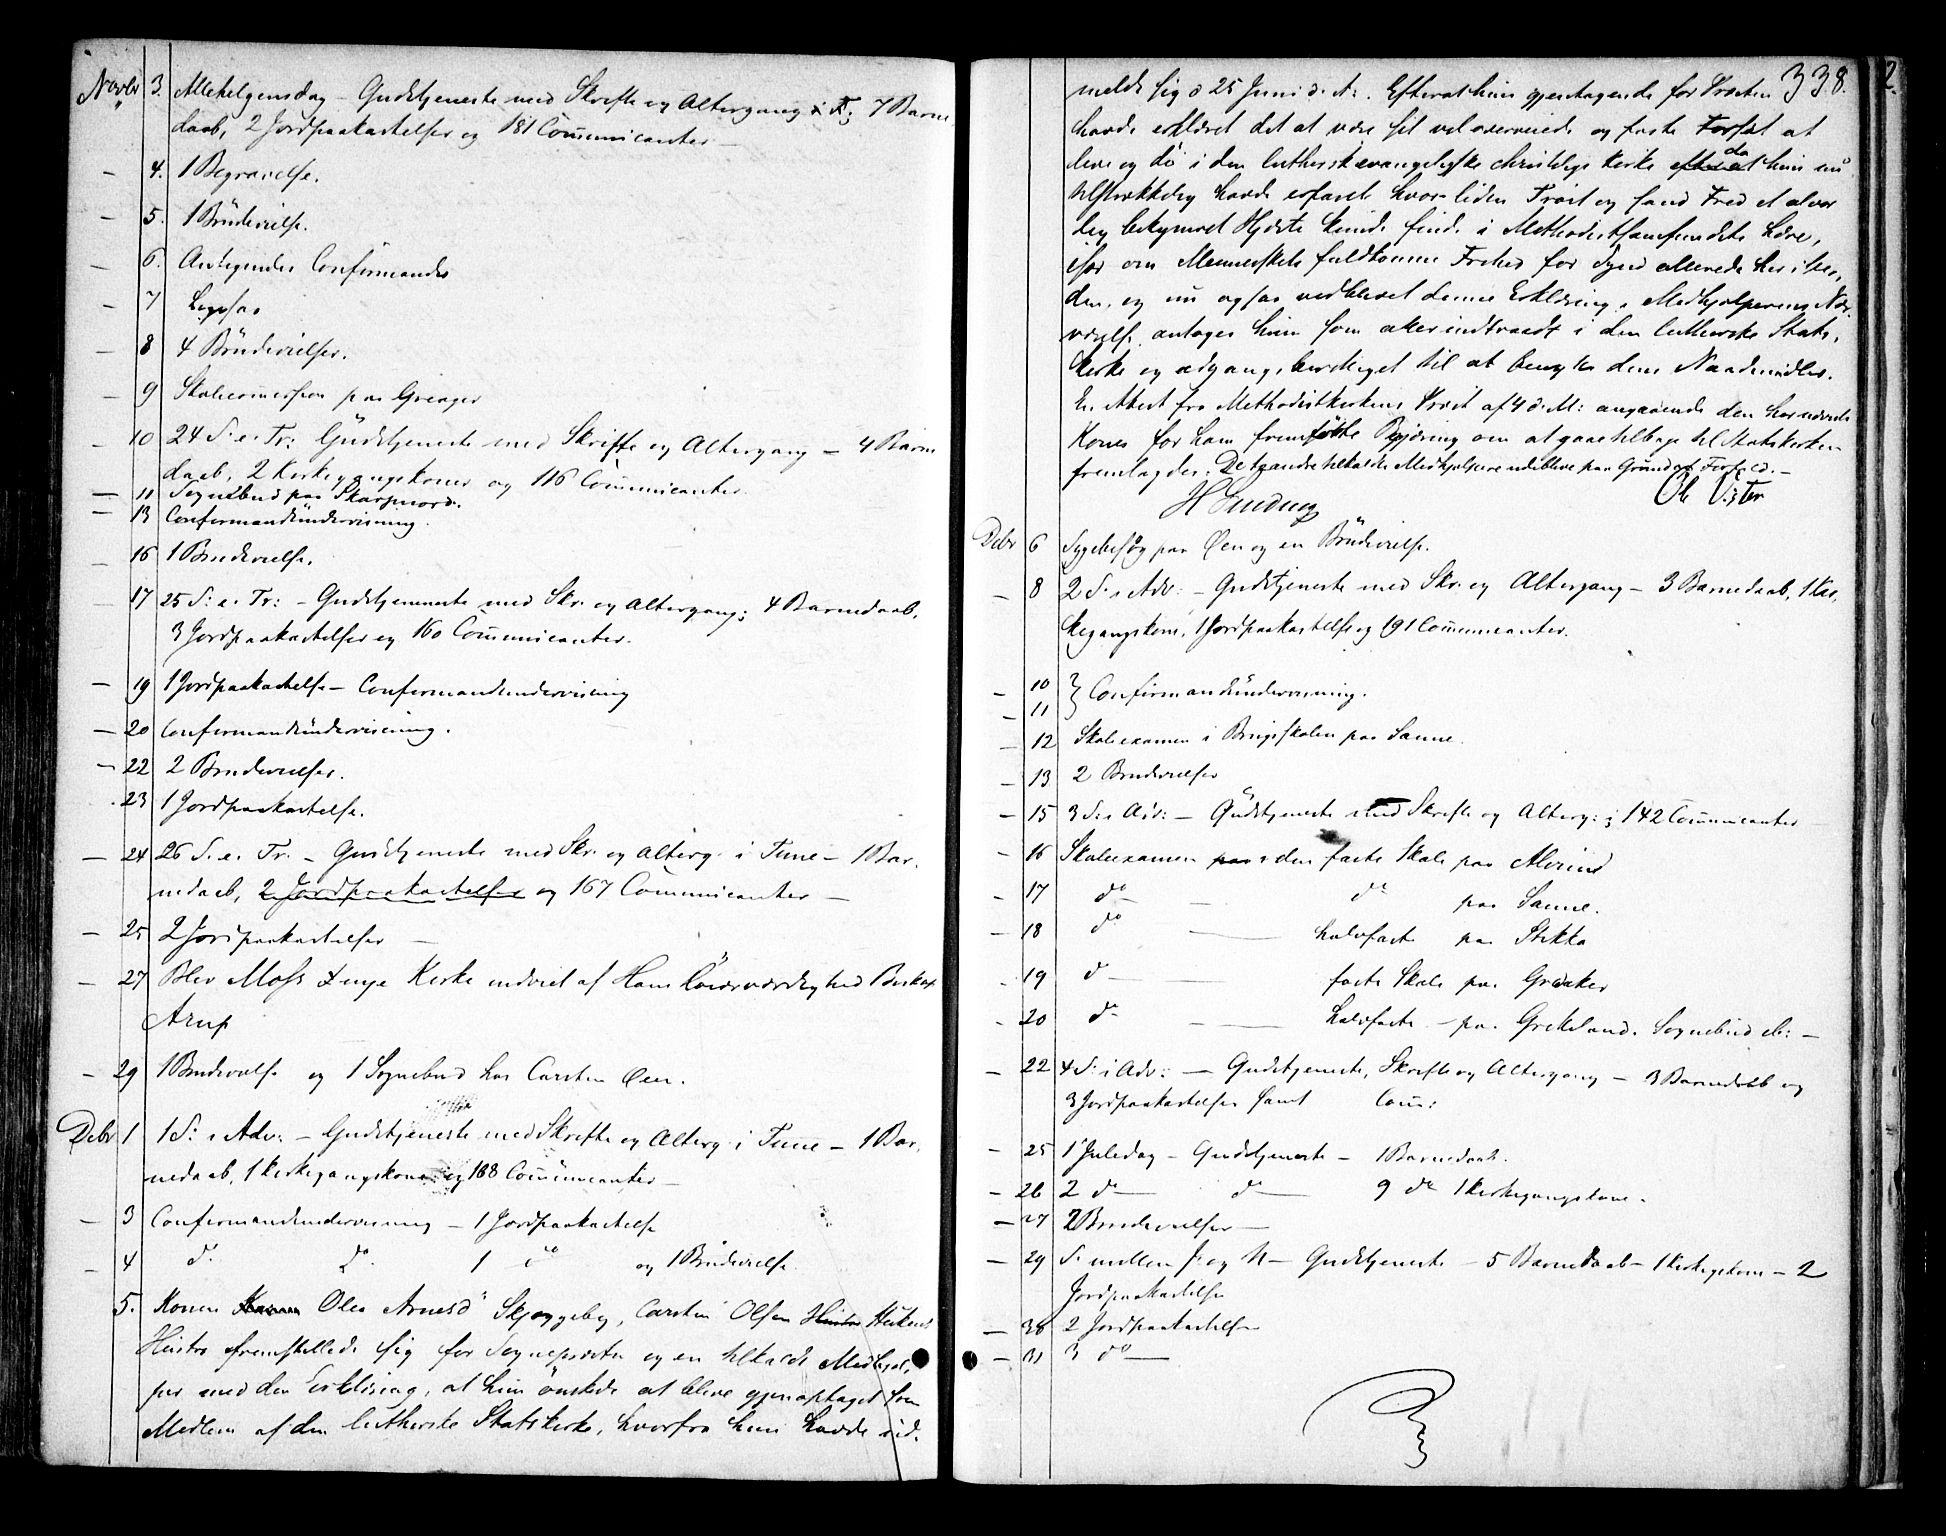 Novbr 3. Allehelgensdag – Gudstjeneste med Skrifte og Altergang i T; 7 Barne
daab, 2 Jordpaakastelser og 181 Communicanter –
– 4. 1 Begravelse.
– 5. 1 Brudevielse.
– 6. Antegnedes Confirmander
– 7
– 8 4 Brudevielser.
– 9 paa Greager
– 10 24 S. e. Tr: Gudstjeneste med Skrifte og Altergang – 4 Barne
daab, 2 Kirkegangskoner og 116 Communicanter.
– 11 Sognebud paa Skarpnord.
– 13 Confirmandundervisning.
– 16 1 Brudevielse.
– 17 25 S: e. Tr: – Gudstjeneste med Skr. og Altergang; 4 Barnedaab,
3 Jordpaakastelser og 160 Communicanter.
– 19 1 Jordpaakastelse – Confirmandundervisning
– 20 Confirmandundervisning.
– 22 2 Brudevielser.
– 23 1 Jordpaakastelse.
– 24 26 S. e. Tr. – Gudstjeneste med Skr. og Alterg. i Tune – 1 Bar,
nedaab, 2 Jordpaakastelser og 167 Communicanter –
– 25 2 Jordpaakastelser –
– 27 Blev Moss nye Kirke indviet af Hans Høiærværdighed Biskop
Arup
– 29 1 Brudevielse og 1 Sognebud hos Carsten Øen.
Debr 1 1 S: i Adv: – Gudstjeneste med Skrifte og Alterg. i Tune – 1 Bar,
nedaab, 1 Kirkegangskone og 188 Communicanter –
– 3 Confirmandundervisning – 1 Jordpaakastelse
– 4 do do 1 do og 1 Brudevielse.
5. Konen Karen Olea Arnesd Skjøggeby, Carsten Olsen Hustro
Hustro fremstillede sig for Sognepræsten og en tilkaldt Medhjæl,
per med den Erklæring, at hun ønskede at blive gjenoptaget som
Medlem af den lutherske Statskirke, hvorfra hun havde ud,
meldt sig d 25 Juni d. A:. Efterat hun gjentagende for Præsten 338.
havde erklæret det at være sit vel overveiede og faste Forsæt at
leve og dø i den luthersk evangeliske christelige Kirke efterat da hun nu
tilstrækkelig havde erfaret hvor liden Trøst og sand Fred et alvor
lig bekymret Hjerte kunde finde i Methodistsamfundets Lære,
især om Menneskets fuldkomne Frihed for Synd allerede her i Ver,
den, og nu ogsaa vedblevet denne Erklæring i Medhjælperens Nær,
værelse, antages hun som atter indtraadt i den lutherske Stats,
kirke og adgangsberettiget til at benytte dens Naademidler.
En Attest fra Methodistkirkens Præst af 4 d. M: angaaende den hernævnte
Kones for ham fremførte Begjæring om at gaae tilbage til Statskirken
fremlagdes. De tvende tilkaldte Medhjælpere udebleve paa Grund af Forfald. –
H Sinding Ole Vister
Debr 6 Sygebesøg paa Øen og en Brudevielse.
– 8 2 S. i Adv: – Gudstjeneste med Skr. og Altergang – 3 Barnedaab, 1 Kir,
kegangskone, 1 Jordpaakastelse og 191 Communicanter.
– 10
– 11 } Confirmandundervisning.
– 12 Skoleexamen i Brugsskolen paa Sanne.
– 13 2 Brudevielser
– 15 3 S. i Adv: – Gudstjeneste med Skrifte og Alterg: ; 142 Communicanter
– 16 Skoleexamen paa i den faste Skole paa Alvim
– 17 do – do paa Sanne.
– 18 do – halvfaste paa Stikka
– 19 do – faste Skole paa Greaker
– 20 do – halvfaste – paa Grekeland. Sognebud –
– 22 4 S: i Adv: – Gudstjeneste, Skrifte og Altergang – 3 Barnedaab og
3 Jordpaakastelser samt Com:
– 25 1 Juledag – Gudstjeneste – 1 Barnedaab.
– 26 2 do – do – 9 do 1 Kirkegangskone.
– 27 2 Brudevielser –
– 29 S. mellem J: og N – Gudstjeneste – 5 Barnedaab – 1 Kirkegskone – 2
Jordpaakastelse
– 30 2 Jordpaakastelser
– 31 3 do –